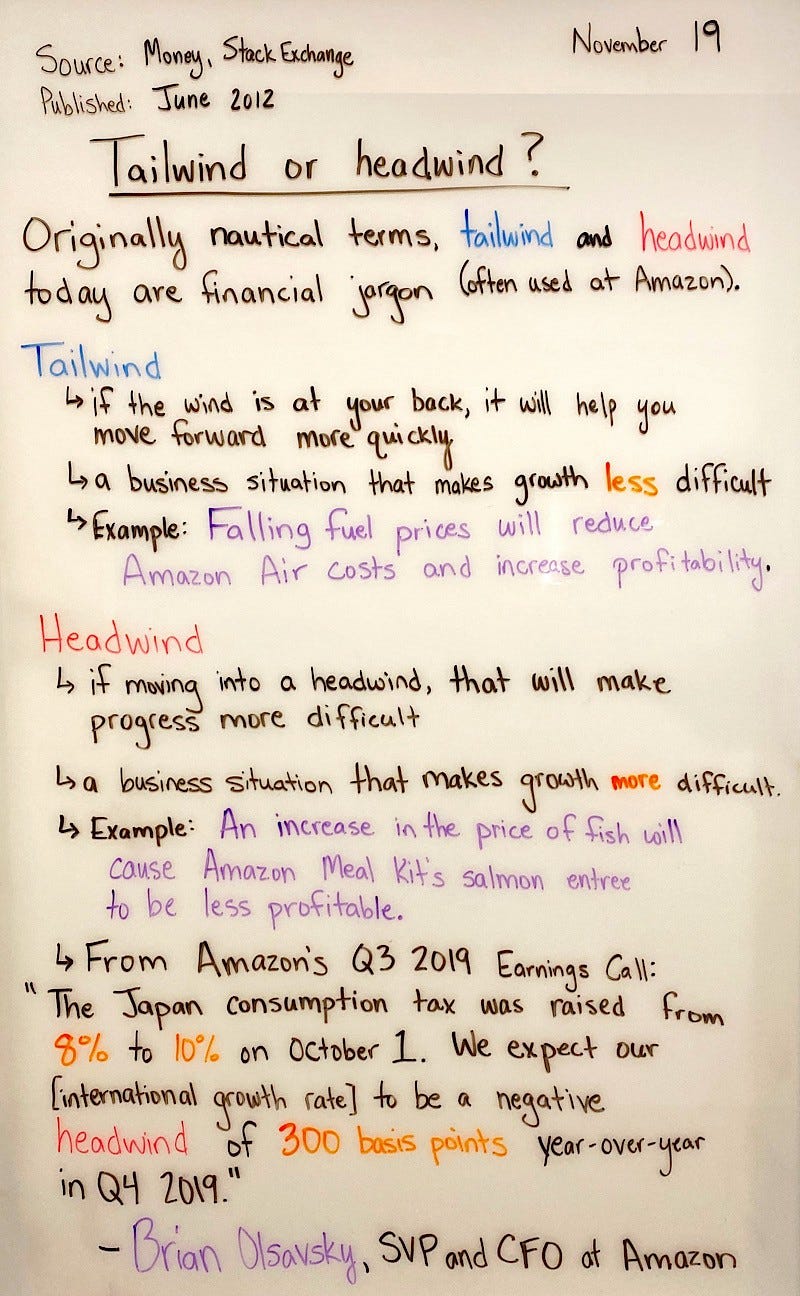 Source: Money, Stack Exchange
November 19
Published: June 2012
Tailwind or headwind?
Originally nautical terms, tailwind and headwind
today are financial jargon (often used at Amazon).
Tailwind
↳ if the wind is at your back, it will help you
move forward more quickly
↳ a business situation that makes growth less difficult
↳ Example: Falling fuel prices will reduce
Amazon Air costs and increase profitability.
Headwind
↳ if moving into a headwind, that will make
progress more difficult
↳ a business situation that makes growth more difficult.
↳ Example: An increase in the price of fish will
cause Amazon Meal Kit's salmon entree
to be less profitable.
↳ From Amazon's Q3 2019 Earnings Call:
"The Japan consumption tax was raised from
8% to 10% on October 1. We expect our
[international growth rate] to be a negative
headwind of 300 basis points year-over-year
in Q4 2019."
- Brian Olsavsky, SVP and CFO at Amazon